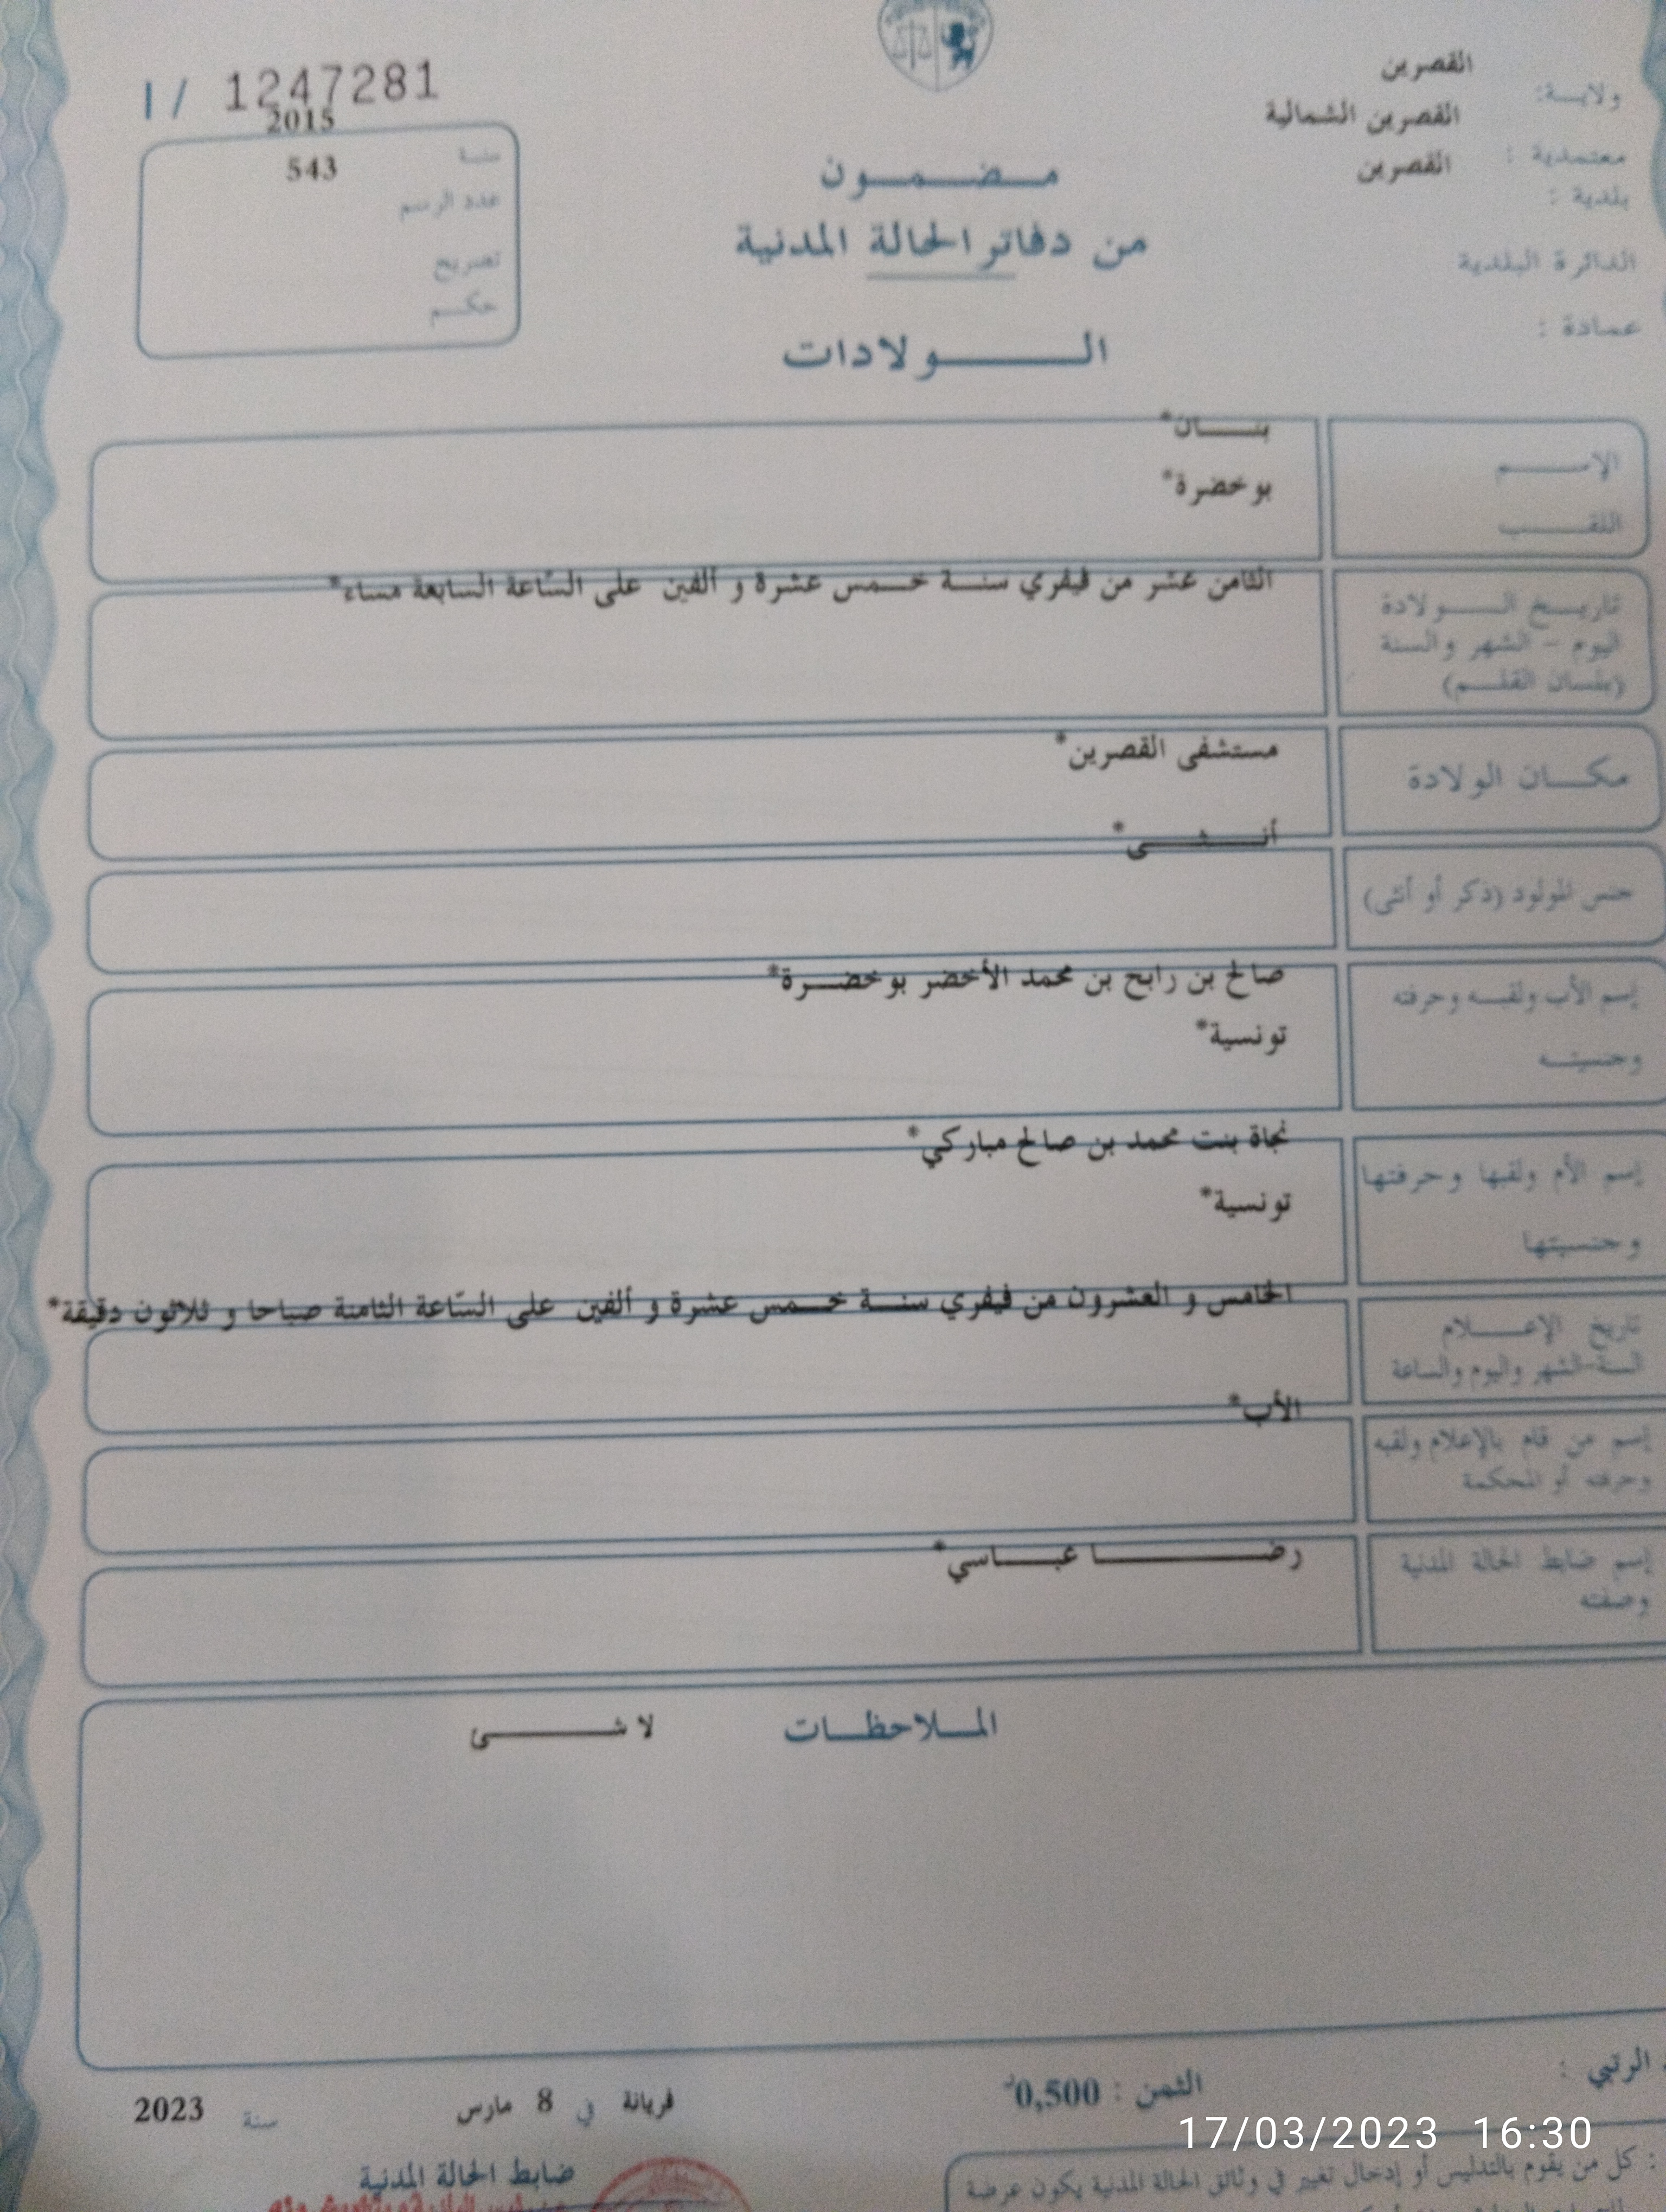 القصرين
ولايـــة:
القصرين الشمالية
معتمدية :
القصرين
بلدية :
الدائرة البلدية
عمادة :
I / 1247281
2015
سنة
543
عدد الرسم
تصريح
حكـــم
مـــضـــمـــون
من دفاتر الحالة المدنية
الـــــولادات
الإســـــم
بنـــان*
اللقـــــب
بوخضرة*
تاريـــخ الـــــولادة
اليوم - الشهر والسنة
(بلسان القلـــم)
الثامن عشر من فيفري سنـــة خـــمس عشرة و ألفين على السّاعة السابعة مساء*
مكـــان الولادة
مستشفى القصرين*
جنس المولود (ذكر أو أنثى)
أنـــثـــى*
إسم الأب ولقبـــه وحرفته
صالح بن رابح بن محمد الأخضر بوخضـــرة*
وجنسيتـــه
تونسية*
إسم الأم ولقبها وحرفتها
نجاة بنت محمد بن صالح مباركي*
وجنسيتها
تونسية*
تاريخ الإعـــــلام
السنة-الشهر واليوم والساعة
الخامس و العشرون من فيفري سنـــة خـــمس عشرة و ألفين على السّاعة الثامنة صباحا و ثلاثون دقيقة*
إسم من قام بالإعلام ولقبه
وحرفته أو المحكمة
الأب*
إسم ضابط الحالة المدنية
وصفته
رضـــــا عبـــاسي*
المـــلاحظـــات
لا شـــــئ
الرتبي :
الثمن : 0,500د
فريانة في 8 مارس سنة 2023
ضابط الحالة المدنية
17/03/2023 16:30
: كل من يقوم بالتدليس أو إدخال تغيير في وثائق الحالة المدنية يكون عرضة